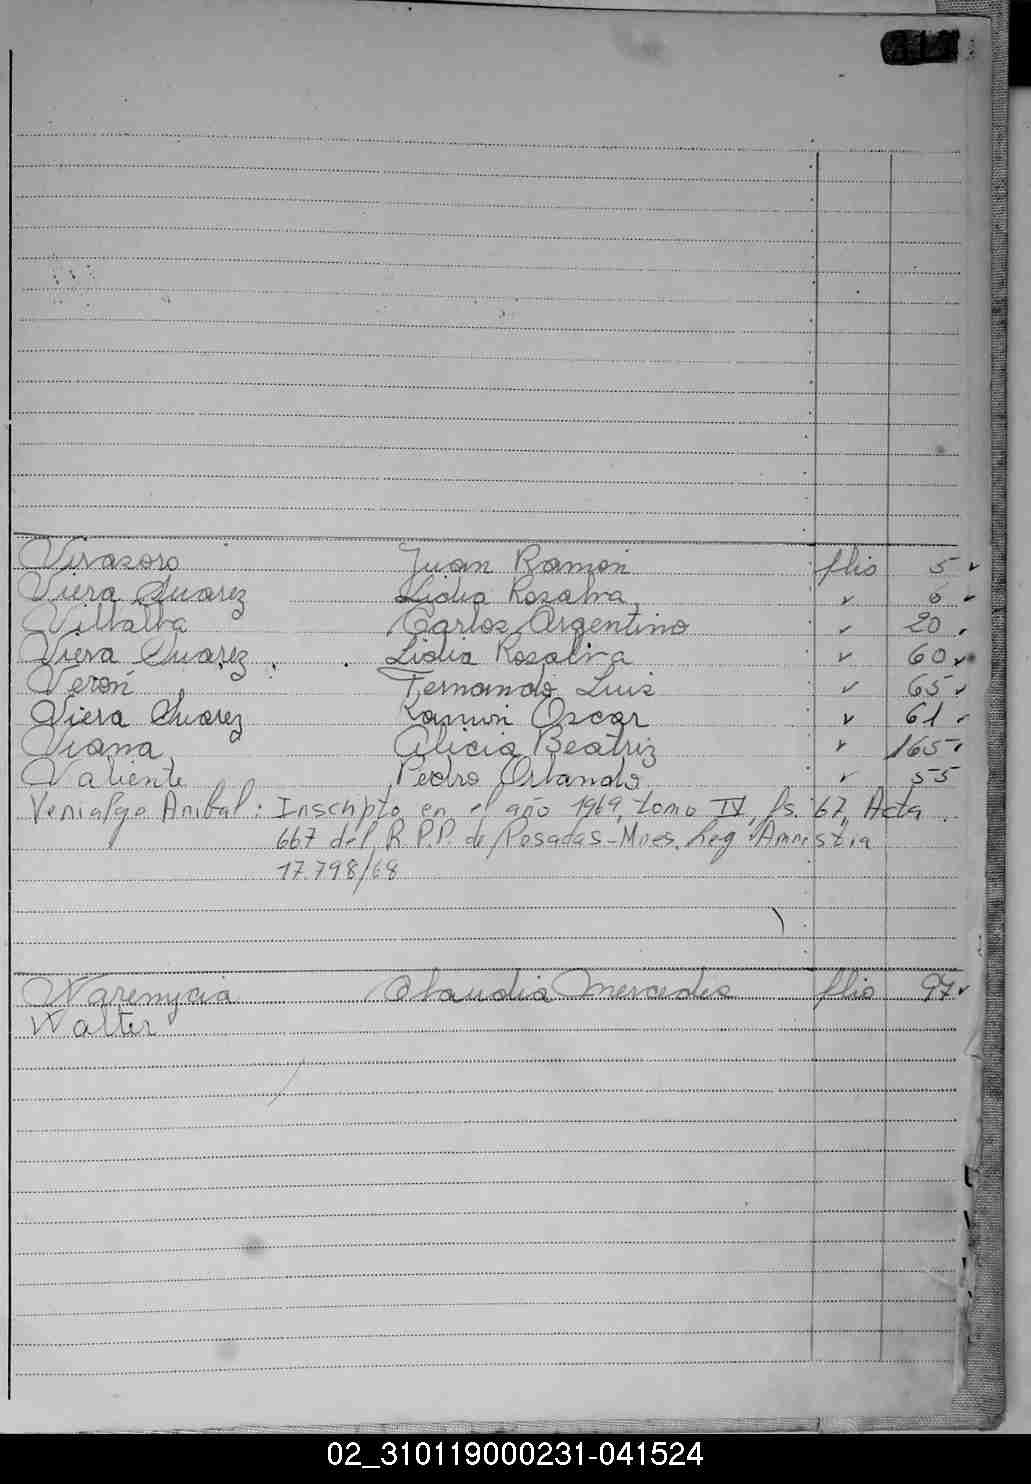 Virasoro Juan Ramón flio 5 ✓
Viera Suarez Lidia Rosalva ✓ 6 ✓
Villalba Carlos Argentino ✓ 20
Viera Suarez Lidia Rosalva ✓ 60 ✓
Verón Fernando Luis ✓ 65 ✓
Viera Suarez Ramón Oscar ✓ 61 ✓
Viana Alicia Beatriz ✓ 165
Valiente Pedro Orlando ✓ 55
Venialgo Anibal: Inscripto en el año 1969, tomo IV, fs. 67, Acta
667 del R.P.P. de Posadas-Mnes. Leg. Amnistia
17.798/68
Waremycia Claudia Mercedes flio 97 ✓
Walter
02_310119000231-041524